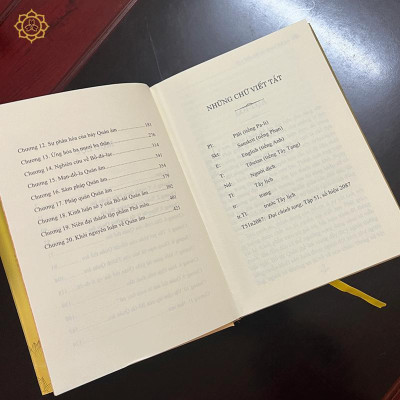 Chương 12. Sự phân hóa của bảy Quán âm ... 181
Chương 13. Ứng hóa ba mươi ba thân ... 276
Chương 14. Nghiên cứu về Bổ-đà-lạc ... 314
Chương 15. Mạn-đà-la Quán âm
Chương 16. Sám pháp Quán âm
Chương 17. Pháp quán Quán âm
Chương 18. Kinh luận sớ ý của Bồ-tát Quán âm
Chương 19. Niên đại thành lập phẩm Phổ môn
Chương 20. Khởi nguyên luận về Quán âm ... 421
NHỮNG CHỮ VIẾT TẮT
Pl: Pāli (tiếng Pa-li)
Skt: Sanskrit (tiếng Phạn)
E: English (tiếng Anh)
T: Tibetan (tiếng Tây Tạng)
Nd: Người dịch
Tl: Tây lịch
tr: trang
tr.Tl: trước Tây lịch
T51n2087: Đại chính tạng, Tập 51, số hiệu 2087